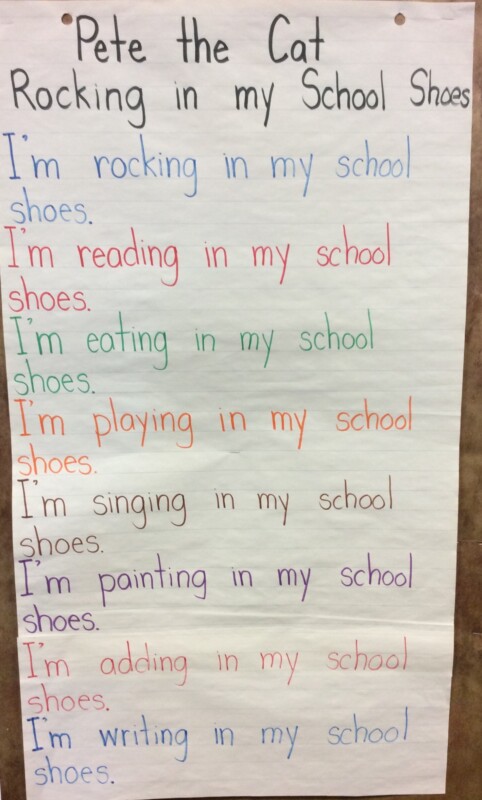 Pete the Cat
Rocking in my School Shoes
I'm rocking in my school
shoes.
I'm reading in my school
shoes.
I'm eating in my school
shoes.
I'm playing in my school
shoes.
I'm singing in my school
shoes.
I'm painting in my school
shoes.
I'm adding in my school
shoes.
I'm writing in my school
shoes.